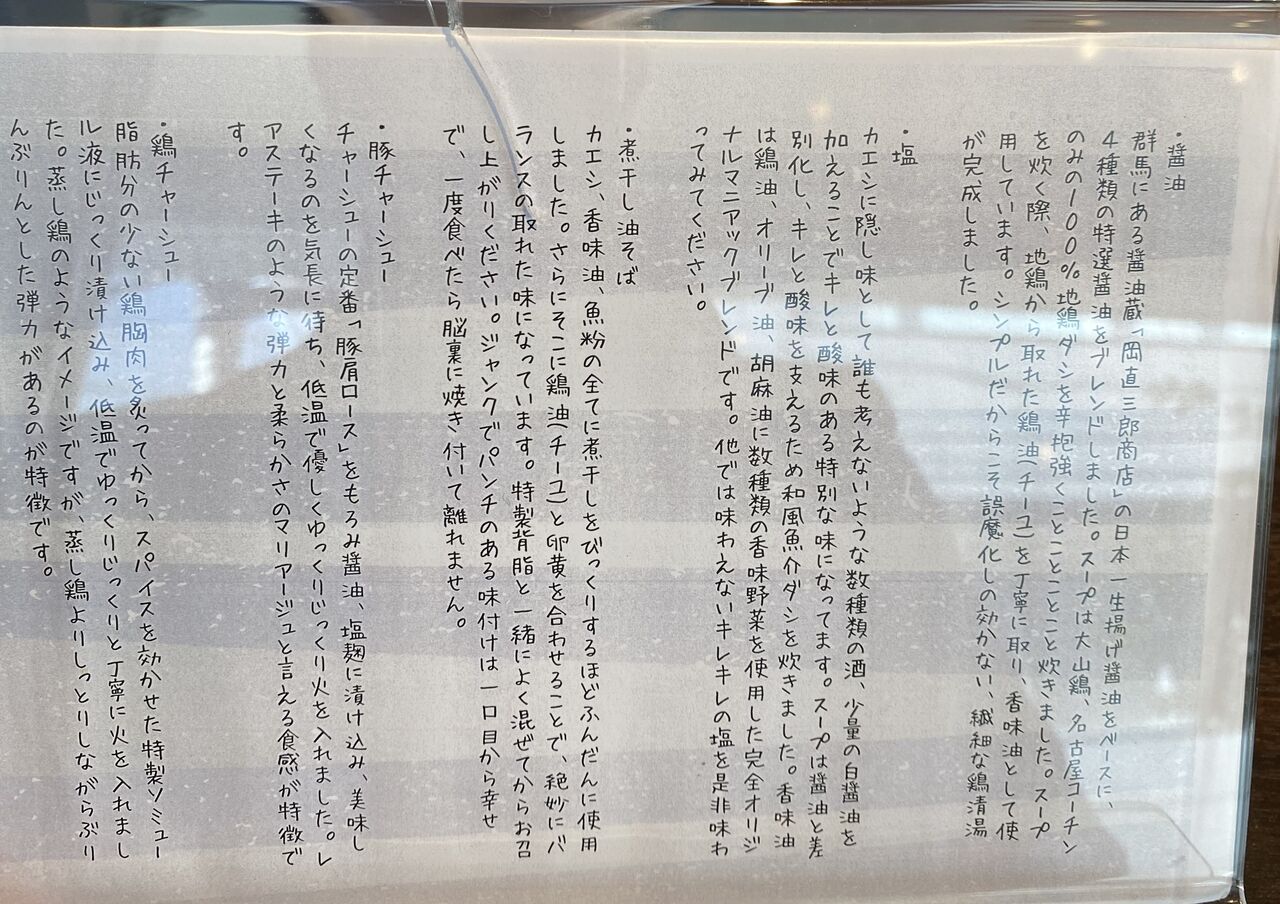 ・醤油
群馬にある醤油蔵「岡直三郎商店」の日本一生揚げ醤油をベースに、
4種類の特選醤油をブレンドしました。スープは大山鶏、名古屋コーチン
のみの100%地鶏ダシを辛抱強くことことこと炊きました。スープ
を炊く際、地鶏から取れた鶏油(チーユ)を丁寧に取り、香味油として使
用しています。シンプルだからこそ誤魔化しの効かない、繊細な鶏清湯
が完成しました。
・塩
カエシに隠し味として誰も考えないような数種類の酒、少量の白醤油を
加えることでキレと酸味のある特別な味になってます。スープは醤油と差
別化し、キレと酸味を支えるため和風魚介ダシを炊きました。香味油
は鶏油、オリーブ油、胡麻油に数種類の香味野菜を使用した完全オリジ
ナルマニアックブレンドです。他では味わえないキレキレの塩を是非味わ
ってみてください。
・煮干し油そば
カエシ、香味油、魚粉の全てに煮干しをびっくりするほどふんだんに使用
しました。さらにそこに鶏油(チーユ)と卵黄を合わせることで、絶妙にバ
ランスの取れた味になっています。特製背脂と一緒によく混ぜてからお召
し上がりください。ジャンクでパンチのある味付けは一口目から幸せ
で、一度食べたら脳裏に焼き付いて離れません。
・豚チャーシュー
チャーシューの定番「豚肩ロース」をもろみ醤油、塩麹に漬け込み、美味し
くなるのを気長に待ち、低温で優しくゆっくりじっくり火を入れました。レ
アステーキのような弾力と柔らかさのマリアージュと言える食感が特徴で
す。
・鶏チャーシュー
脂肪分の少ない鶏胸肉を炙ってから、スパイスを効かせた特製ソミュー
ル液にじっくり漬け込み、低温でゆっくりじっくりと丁寧に火を入れまし
た。蒸し鶏のようなイメージですが、蒸し鶏よりしっとりしながらぷり
んぷりんとした弾力があるのが特徴です。